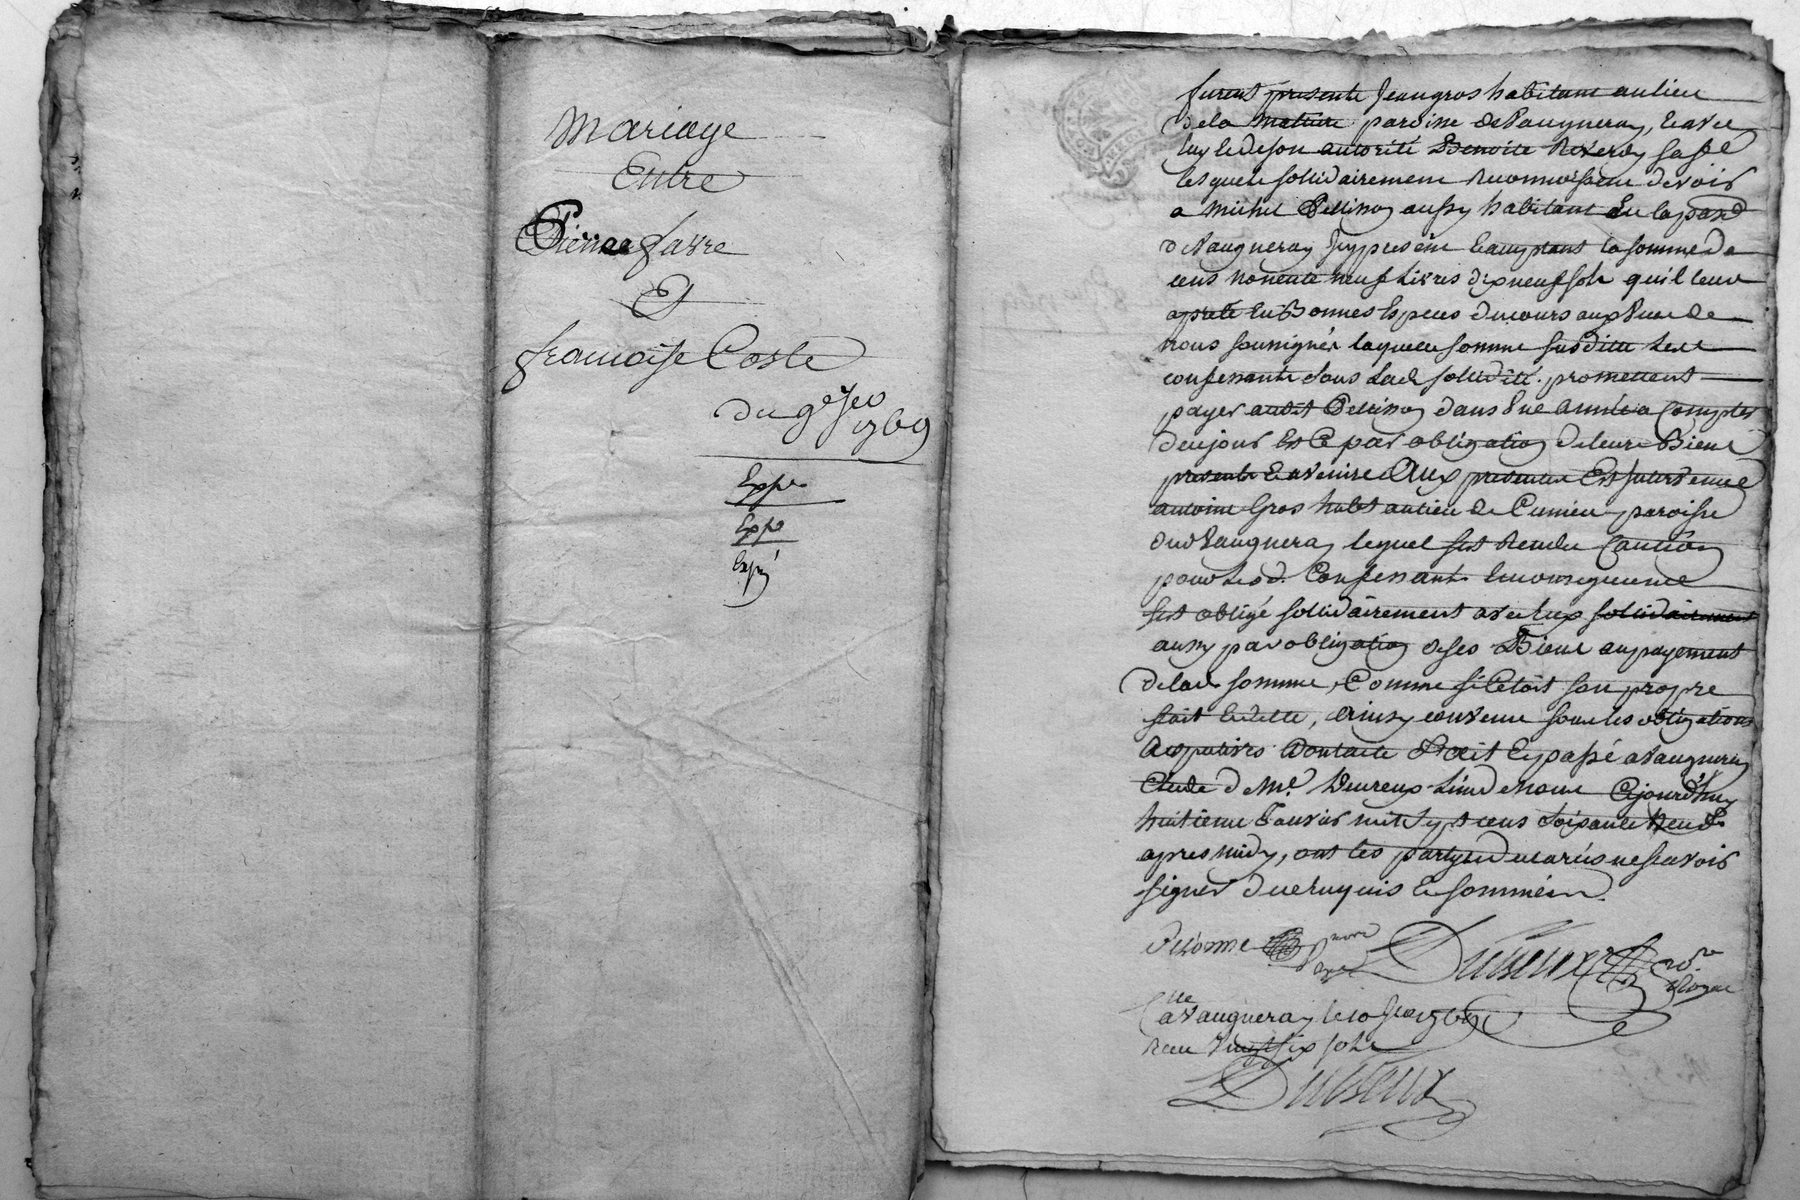 Mariage
Entre
Pierre favre
Et
francoise Coste
du 9e Jer
1769
Expe
Expe
Expé
furent présents Jean gros habitant au lieu
de la paroisse de Vaugneray, & avec
luy & de son autorité Benoite sa fe
lesquels sollidairement reconnoissent devoir
a Michel Pellisson aussy habitant en la par
de Vaugneray Icy present & acceptant la somme de
cens nonente neuf Livres dix neuf sols qu'il leur
a preté En Bonnes Especes du cours aux Vues de
nous soussignés laquelle somme susditte
confessants sous lad sollidité promettent
payer audit Pellisson dans Une année a Compter
de ce jour Et Ce par obligation de leurs Biens
presents & avenirs Aux presentes Est Intervenu
antoine Gros habt au lieu de paroisse
dud Vaugneray lequel sest Rendu Caution
pour Lesd. Confessants En consequence
sest obligé sollidairement avec Eux sollidairement
aussy par obligation de ses Biens au payement
de lad somme, Comme si Cetoit son propre
fait & dette, Ainsy convenu sous les obligations
Respectives dont acte Fait & passé a Vaugneray
Etude de Me. Dutreux L'un de Nous Cejourd'huy
huitieme Janvier mil sept cens soixante Neuf
apres midy, ont les partyes declarées ne scavoir
signer de ce Enquis & sommées.
Delorme Dutreux
Royal
Clle a Vaugneray le 10 Janr 1769
Recu Vingt six sols
Dutreux